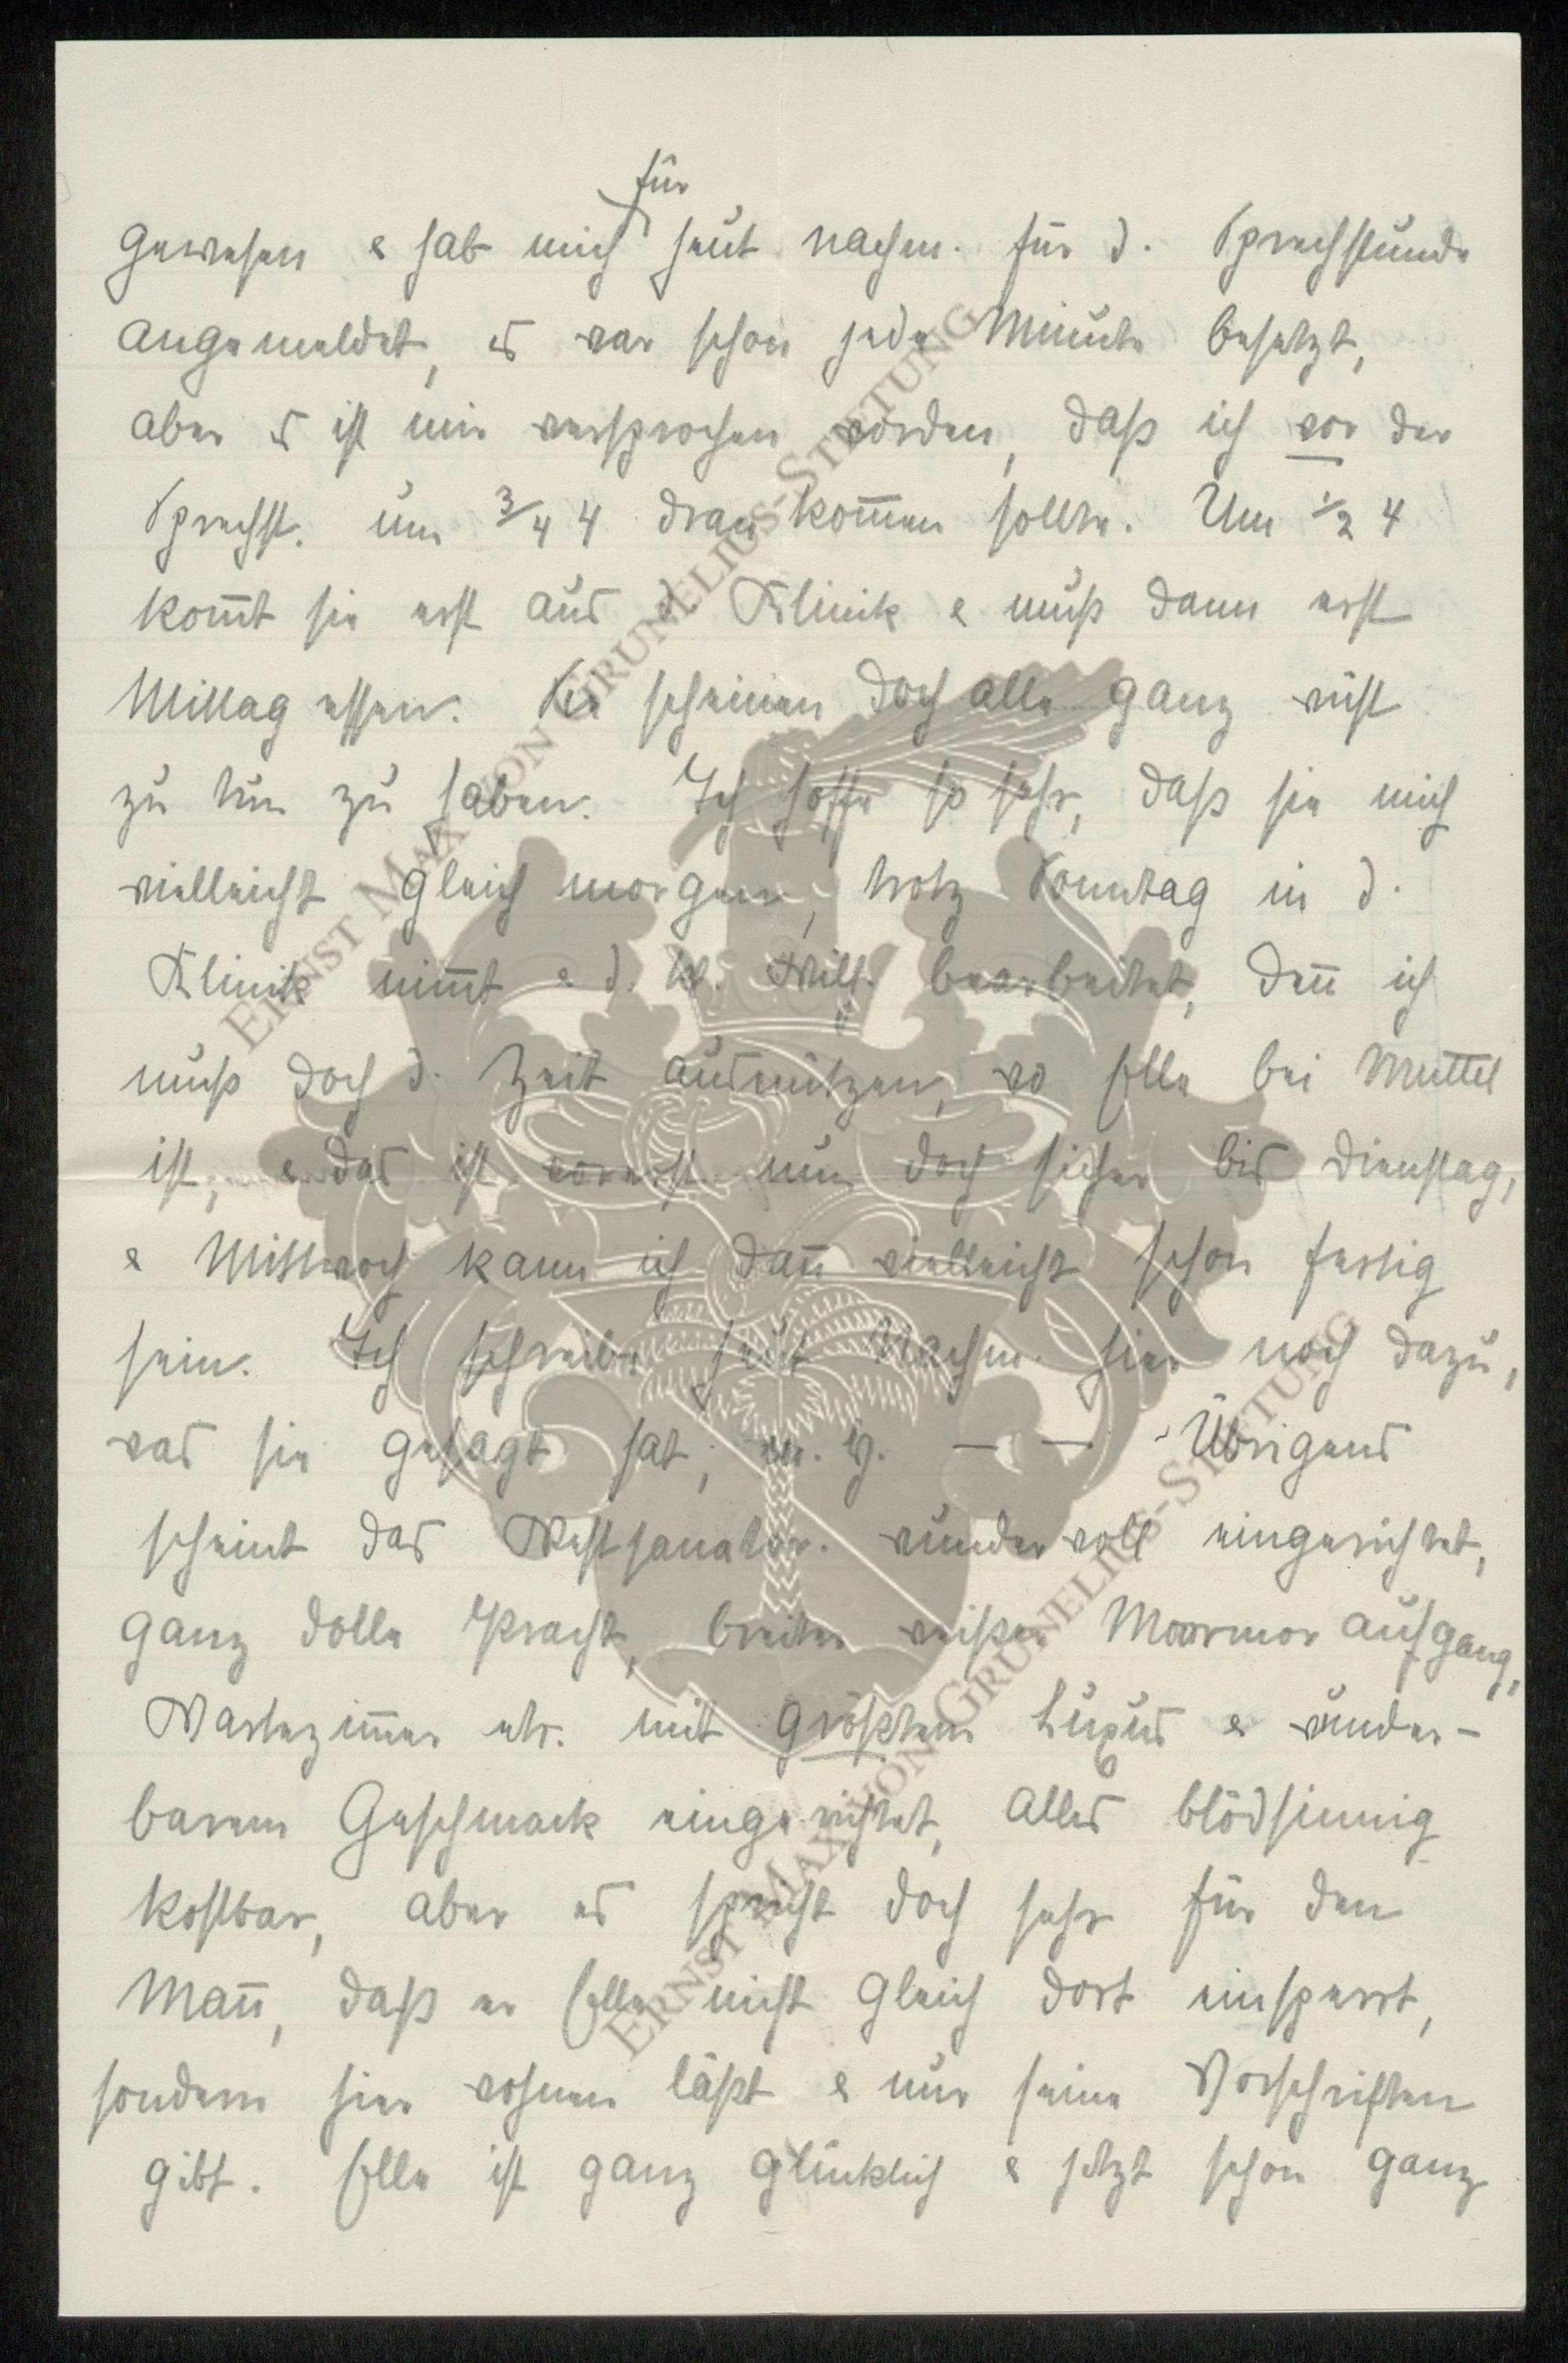 für
gewesen & hab mich heut nachm. für d. Sprechstunde
angemeldet, es war schon jede Minute besetzt,
aber es ist mir versprochen worden, daß ich vor der
Sprechst. um 3/4 4 dran kom̅en sollte. Um 1/2 4
kom̅t sie erst aus d. Klinik & muß dann erst
Mittag essen. Sie scheinen doch alle ganz wüst
zu tun zu haben. Ich hoffe so sehr, daß sie mich
vielleicht gleich morgen, trotz Sonntag in d.
Klinik nim̅t & d. bearbeitet, den̅ ich
muß doch d. Zeit ausnützen, wo Elle bei Muttel
ist, & das ist vorerst nun doch sicher bis Dienstag,
& Mittwoch kann ich dan̅ vielleicht schon fertig
sein. Ich schreibe heut Nachm. hier noch dazu,
was sie gesagt hat, — — Übrigens
scheint das Westsanator. wundervoll eingerichtet,
ganz dolle Pracht, breiter weißer Marmor aufgang,
Wartezim̅er etc. mit größtem Luxus & wunder-
barem Geschmack eingerichtet, alles blödsinnig
kostbar, aber es spricht doch sehr für den
Man̅, daß er Elle nicht gleich dort einsperrt,
sondern hier wohnen läßt & nur seine Vorschriften
gibt. Elle ist ganz glücklich & jetzt schon ganz
ERNST MAX VON GRUNELIUS-STIFTUNG
ERNST MAX VON GRUNELIUS-STIFTUNG